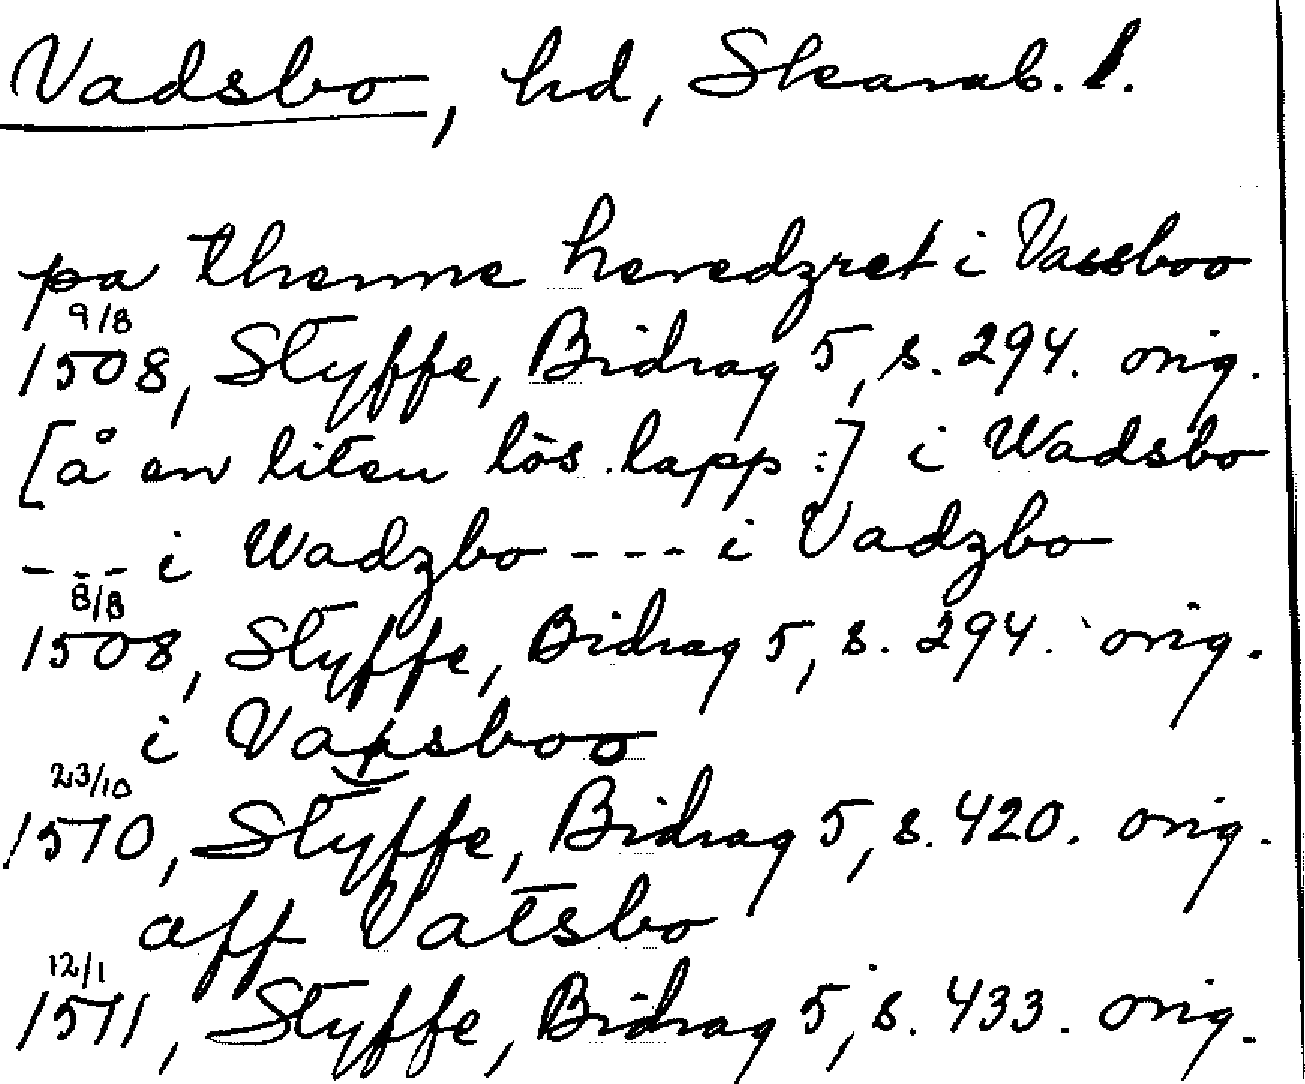 Vadsbo, hd, Skarab. l.
pa thenne heredzret i Vassboo
9/8
1508, Styffe, Bidrag 5, s. 294. orig.
[å en liten lös lapp:] i Wadsbo
--- i Wadzbo --- i Vadzbo
8/8
1508, Styffe, Bidrag 5, s. 294. orig.
i Vapsboo
23/10
1510, Styffe, Bidrag 5, s. 420. orig.
aff Vatsbo
12/1
1511, Styffe, Bidrag 5, s. 433. orig.